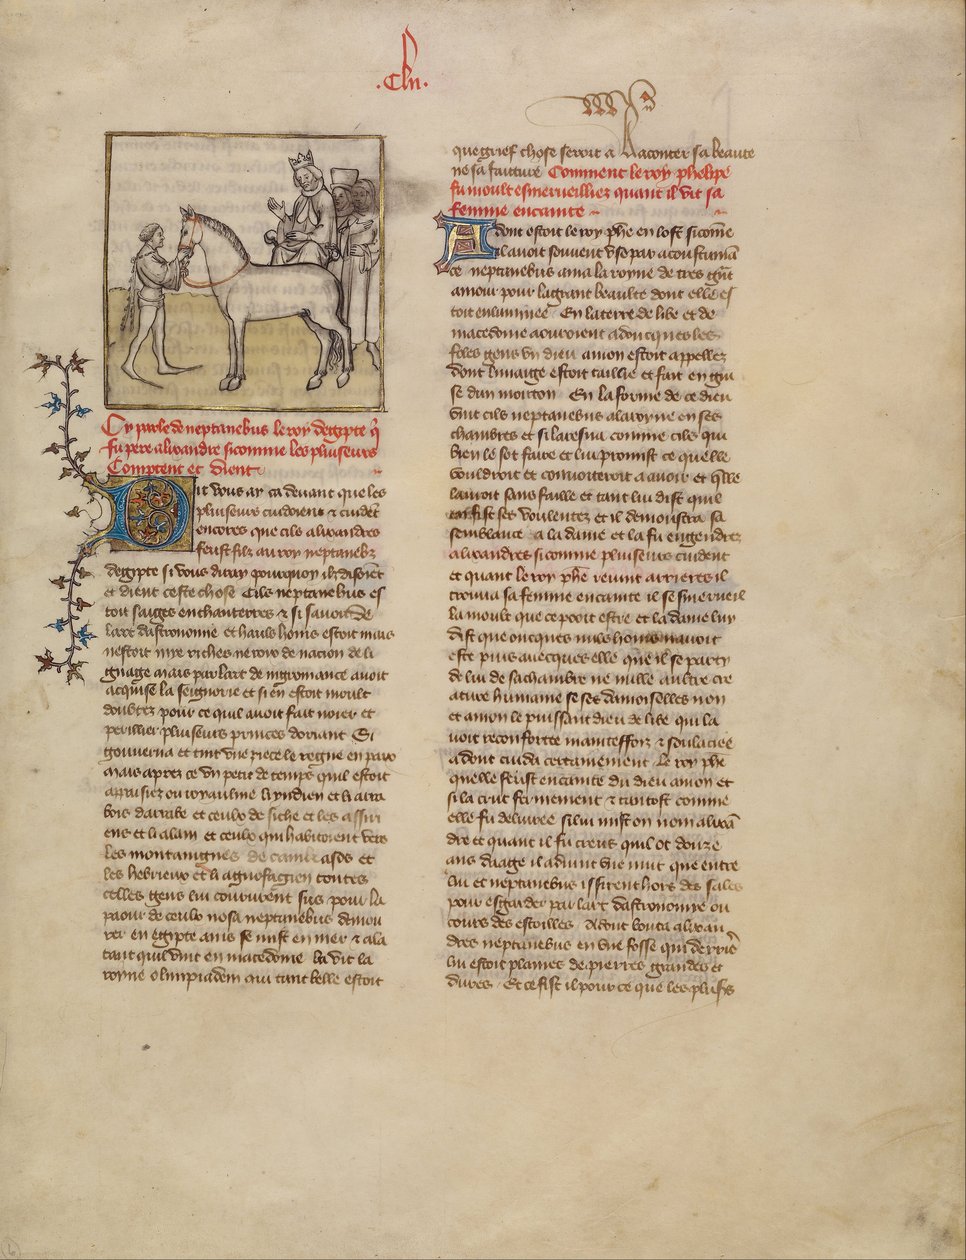 .Clii.
Cy parle de neptanebus le roy degypte q̄
fu pere alixandre sicomme les pluiseurs
Comptent et dient
Dit vous ay ca devant que les
pluiseurs cuidoient & cuidēt
encores que cils alixandres
feust filz au roy neptaneb3
degypte si vous diray pourquoy ilz disoiēt
et dient ceste chose Cils neptanebus es
toit saiges enchanterres & si savoit de
lart dastronomie et hauls homs estoit mais
nestoit mie riches ne roys de nacion de li
gnage mais par lart de nigromance avoit
acquise la seignorie et si en estoit moult
doubtez pour ce quil avoit fait noier et
perillier pluiseurs princes doriant Si
gouverna et tint une piece le regne en paix
mais apres ce un petit de temps quil estoit
appaisiez ou royaulme li yndien et li arra
bois darrabe et ceulx de siche et les assiri
ens et li alain et ceulx qui habitoient vers
les montaingnes de caucasos et
les hebrieux et li agnofagien toutes
celles gens lui coururent sus pour la
paour de ceulx nosa neptanebus demou
rer en egipte ains se mist en mer & ala
tant quil vint en macedoine la vit la
royne olimpiadem qui tant belle estoit
que grief chose seroit a Raconter sa beaute
ne sa faiture Comment le roy phelippe
fu moult esmerveilliez quant il vit sa
femme encainte
Adont estoit le roy ph̄e en lost sicom̄e
il avoit souvent use par acoustuman
ce neptanebus ama la royne de tres grāt
amour pour la grant beaulte dont elle es
toit enluminee En la terre de libe et de
macedoine aouroient adoncques les
foles gens un dieu amon estoit appellez
dont limaige estoit taillie et fait en gui
se dun mouton En la forme de ce dieu
vint cils neptanebus a la royne en ses
chambres et si laresna comme cils qui
bien le sot faire et lui promist ce quelle
vouldroit et convoiteroit a avoir et q̄lle
lavroit sans faille et tant lui dist quil
en fist ses voulentez et il demoustra sa
semblance a la dame et la fu engendrez
alixandres si comme pluiseurs cuident
et quant le roy ph̄e revint arrieres il
trouva sa femme encainte il se smerveil
la moult que ce pooit estre et la dame luy
dist que oncques nuls homs navoit
este puis avecques elle que il se party
de lui de sa chambre ne nulle aultre cre
ature humaine se ses damoiselles non
et amon le puissant dieu de libe qui la
voit reconfortee & soulaciee
adont cuida certainement le roy ph̄e
quelle feust encainte du dieu amon et
si la crut fermement & tantost comme
elle fu delivree si lui mist on nom alixā
dre et quant il fu creus quil ot douze
ans daage il advint une nuit que entre
lui et neptanebus issirent hors des sales
pour esgarder par lart dastronomie ou
cours des estoilles Adont bouta alixan
dres neptanebus en une fosse qui derriē
lui estoit plaine de pierres grandes et
dures Et ce fist il pour ce que les pluis's